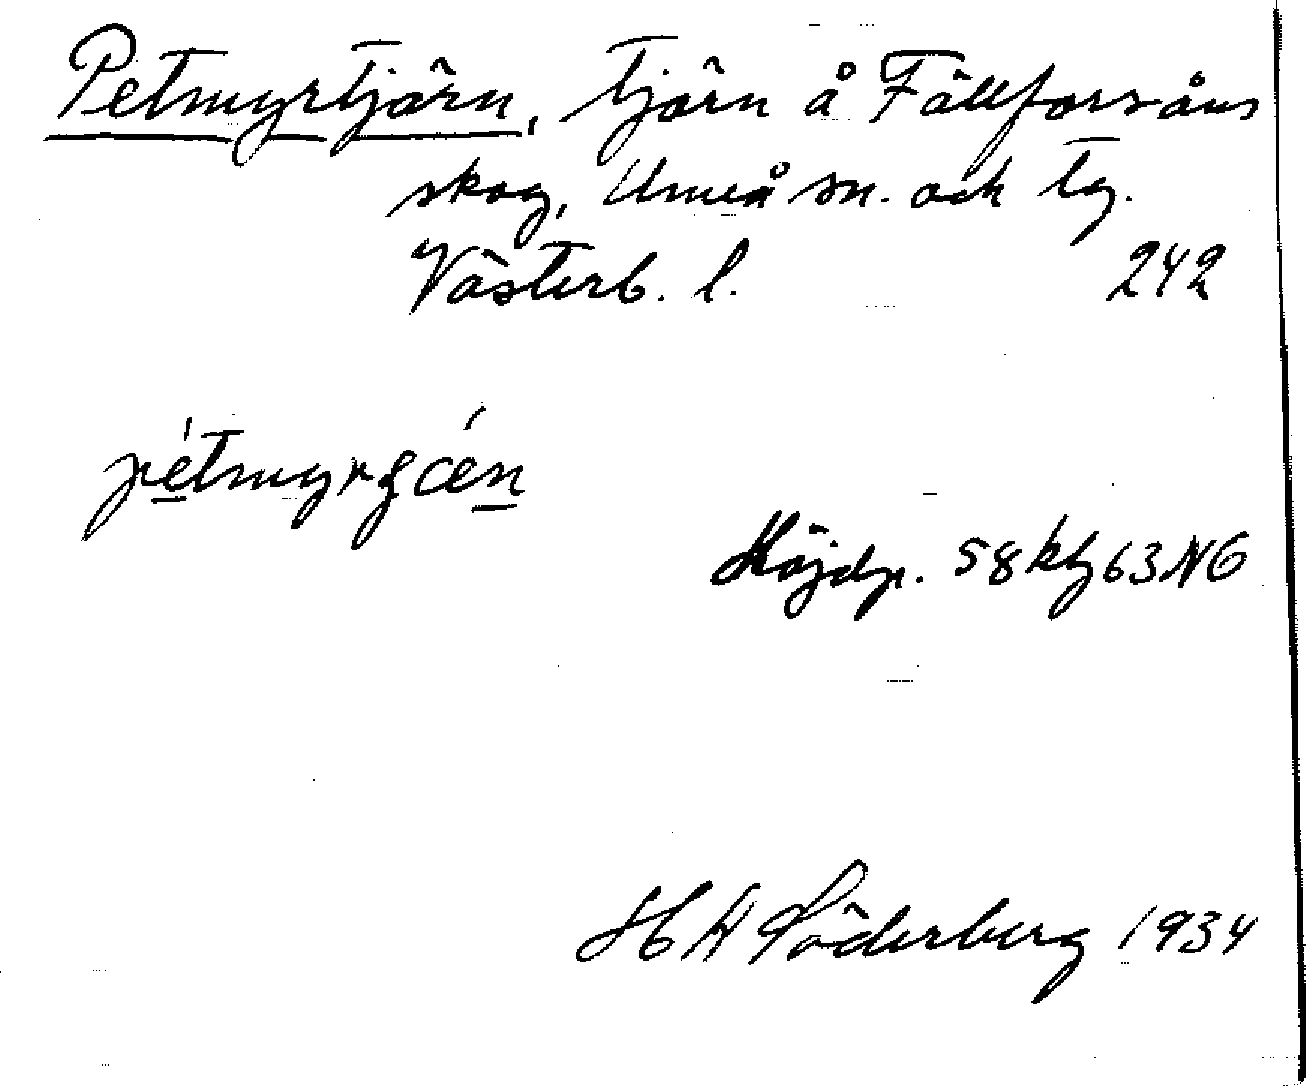 Petmyrtjärn, tjärn å Fällforsåns
skog, Umeå sn. och tg.
Västerb. l. 242
Höjdp. 58 kf 63 NG
H W Söderberg 1934